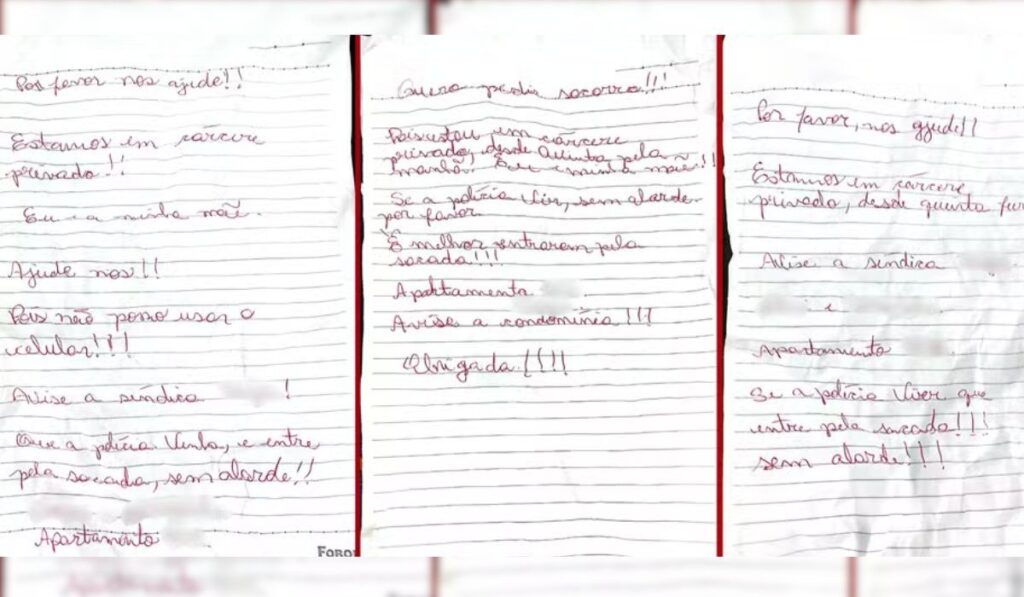 Por favor nos ajude!!
Estamos em cárcere
privado!!
Eu e a minha mãe.
Ajude nos!!
Pois não posso usar o
celular!!!
Avise a síndica !
Que a polícia venha, e entre
pela sacada, sem alarde!!
Apartamento
FORO
Quero pedir socorro!!!
Pois estou em cárcere
privado, desde Quinta pela
manhã. Eu e minha mãe!!
Se a polícia vir, sem alarde
por favor
É melhor entrarem pela
sacada!!!
Apartamento
Avise a condomínia!!!
Obrigada!!!!
Por favor, nos ajude!!
Estamos em cárcere
privado, desde quinta
Avise a síndica
e
Apartamento
Se a polícia vier que
entre pela sacada!!!
sem alarde!!!